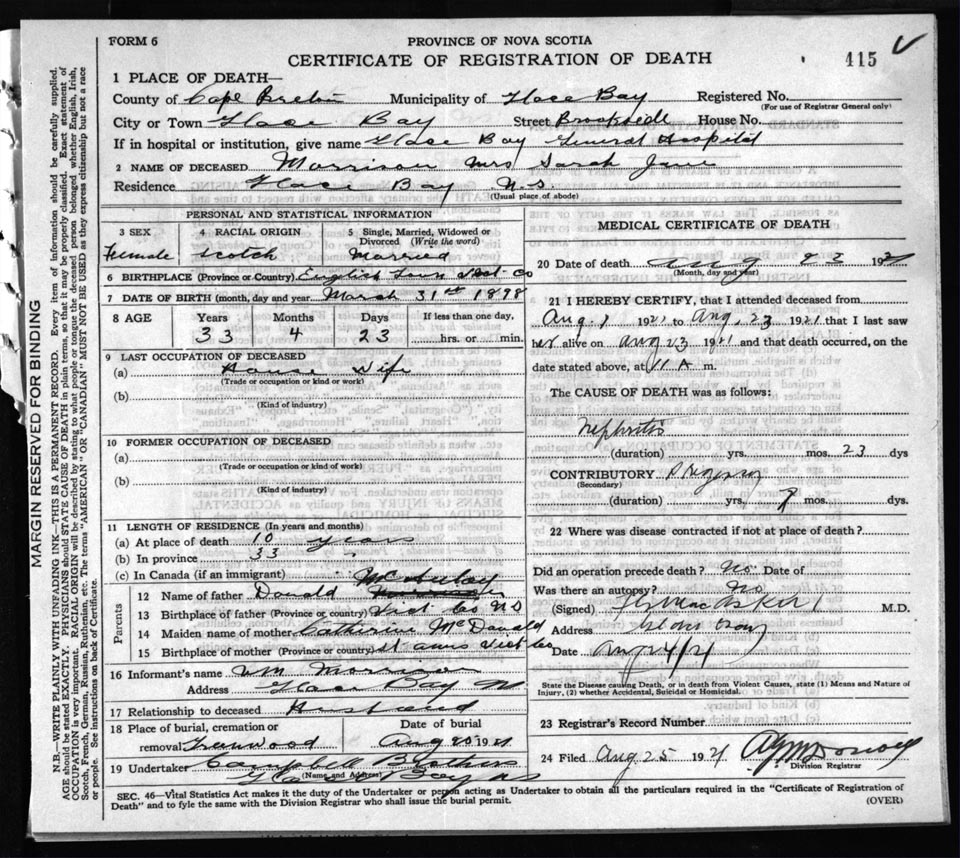 FORM 6
PROVINCE OF NOVA SCOTIA
CERTIFICATE OF REGISTRATION OF DEATH
415
1 PLACE OF DEATH—
County of Cape Breton Municipality of Glace Bay Registered No.
(For use of Registrar General only)
City or Town Glace Bay Street Brookside House No.
If in hospital or institution, give name Glace Bay General Hospital
2 NAME OF DECEASED Morrison Mrs Sarah Jane
Residence Glace Bay N.S.
(Usual place of abode)
PERSONAL AND STATISTICAL INFORMATION
3 SEX 4 RACIAL ORIGIN 5 Single, Married, Widowed or Divorced (Write the word)
Female Scotch Married
6 BIRTHPLACE (Province or Country) English Town Vict. Co
7 DATE OF BIRTH (month, day and year March 31st 1898
8 AGE Years Months Days If less than one day,
33 4 23 hrs. or min.
9 LAST OCCUPATION OF DECEASED
(a) House Wife
(Trade or occupation or kind or work)
(b)
(Kind of industry)
10 FORMER OCCUPATION OF DECEASED
(a)
(Trade or occupation or kind of work)
(b)
(Kind of industry)
11 LENGTH OF RESIDENCE (In years and months)
(a) At place of death 10 years
(b) In province 33 "
(c) In Canada (if an immigrant)
Parents
McAulay
12 Name of father Donald
13 Birthplace of father (Province or country) Vict Co N S
14 Maiden name of mother Catherine McDonald
15 Birthplace of mother (Province or country) St Anns Vict Co
16 Informant's name Morrison
Address Glace Bay N
17 Relationship to deceased Husband
18 Place of burial, cremation or removal Greenwood
Date of burial Aug 25 1921
19 Undertaker Campbell Brothers
(Name and Address) Glace Bay NS
MEDICAL CERTIFICATE OF DEATH
20 Date of death Aug 23 1921
(Month, day and year)
21 I HEREBY CERTIFY, that I attended deceased from
Aug. 1 1921 to Aug. 23 1921 that I last saw
her alive on Aug 23 1921 and that death occurred, on the
date stated above, at 11 A m.
The CAUSE OF DEATH was as follows:
Nephritis
(duration) yrs. mos. 23 dys
CONTRIBUTORY Pregnancy
(Secondary)
(duration) yrs. 7 mos. dys.
22 Where was disease contracted if not at place of death?
Did an operation precede death? No Date of
Was there an autopsy? No
(Signed) MacAskill M.D.
Address Glace Bay
Date Aug 24/21
State the Disease causing Death, or in death from Violent Causes, state (1) Means and Nature of
Injury, (2) whether Accidental, Suicidal or Homicidal.
23 Registrar's Record Number
24 Filed Aug 25 1921
Division Registrar
SEC. 46—Vital Statistics Act makes it the duty of the Undertaker or person acting as Undertaker to obtain all the particulars required in the "Certificate of Registration of
Death" and to fyle the same with the Division Registrar who shall issue the burial permit.
(OVER)
MARGIN RESERVED FOR BINDING
N.B.—WRITE PLAINLY WITH UNFADING INK—THIS IS A PERMANENT RECORD. Every item of information should be carefully supplied.
AGE should be stated EXACTLY. PHYSICIANS should STATE CAUSE OF DEATH in plain terms, so that it may be properly classified. Exact statement of
OCCUPATION is very important. RACIAL ORIGIN will be described by stating to what people or tongue the deceased person belonged, whether English, Irish,
Scotch, French, German, Russian, Ruthenian, etc. The terms "AMERICAN" OR "CANADIAN" MUST NOT BE USED as they express citizenship but not a race
or people. See instructions on back of Certificate.